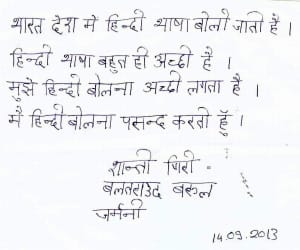 भारत देश मे हिन्दी भाषा बोली जाती है ।
हिन्दी भाषा बहुत ही अच्छी है ।
मुझे हिन्दी बोलना अच्छी लगता है ।
मै हिन्दी बोलना पसन्द करती हूँ ।
शान्ती गिरी
बरुल
जर्मनी
14.09.2013